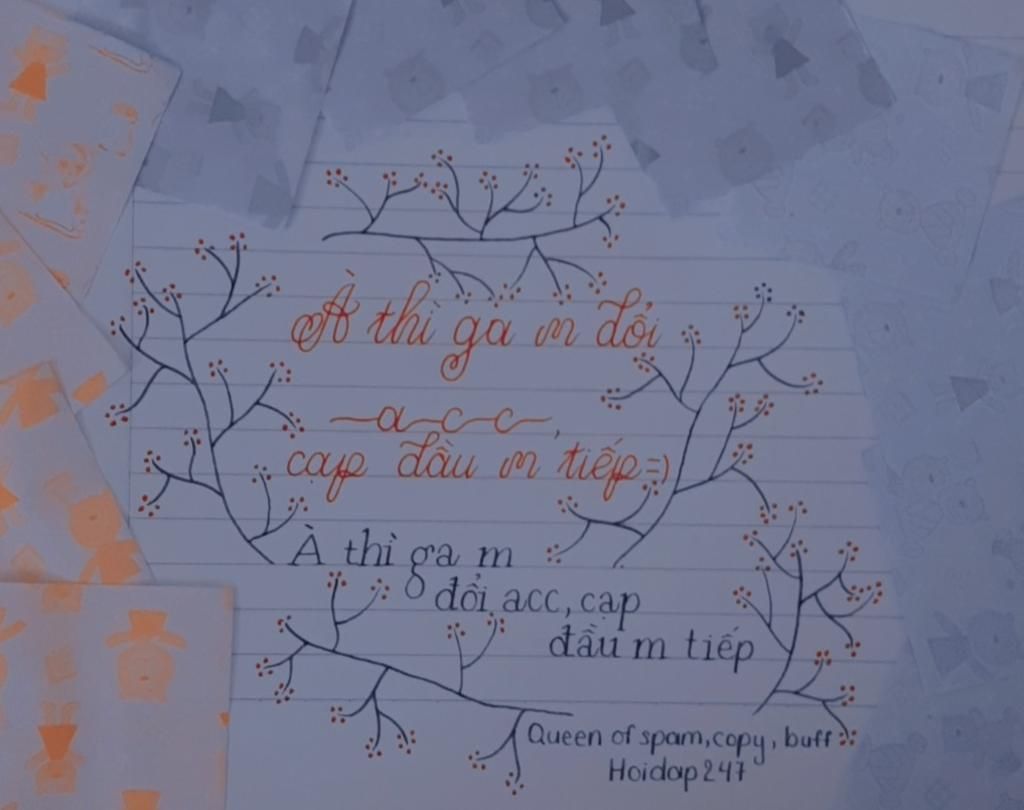 À thì ga m đổi
acc,
cạp đầu m tiếp=)
À thì ga m
đổi acc, cạp
đầu m tiếp
Queen of spam, copy, buff
Hoidap247